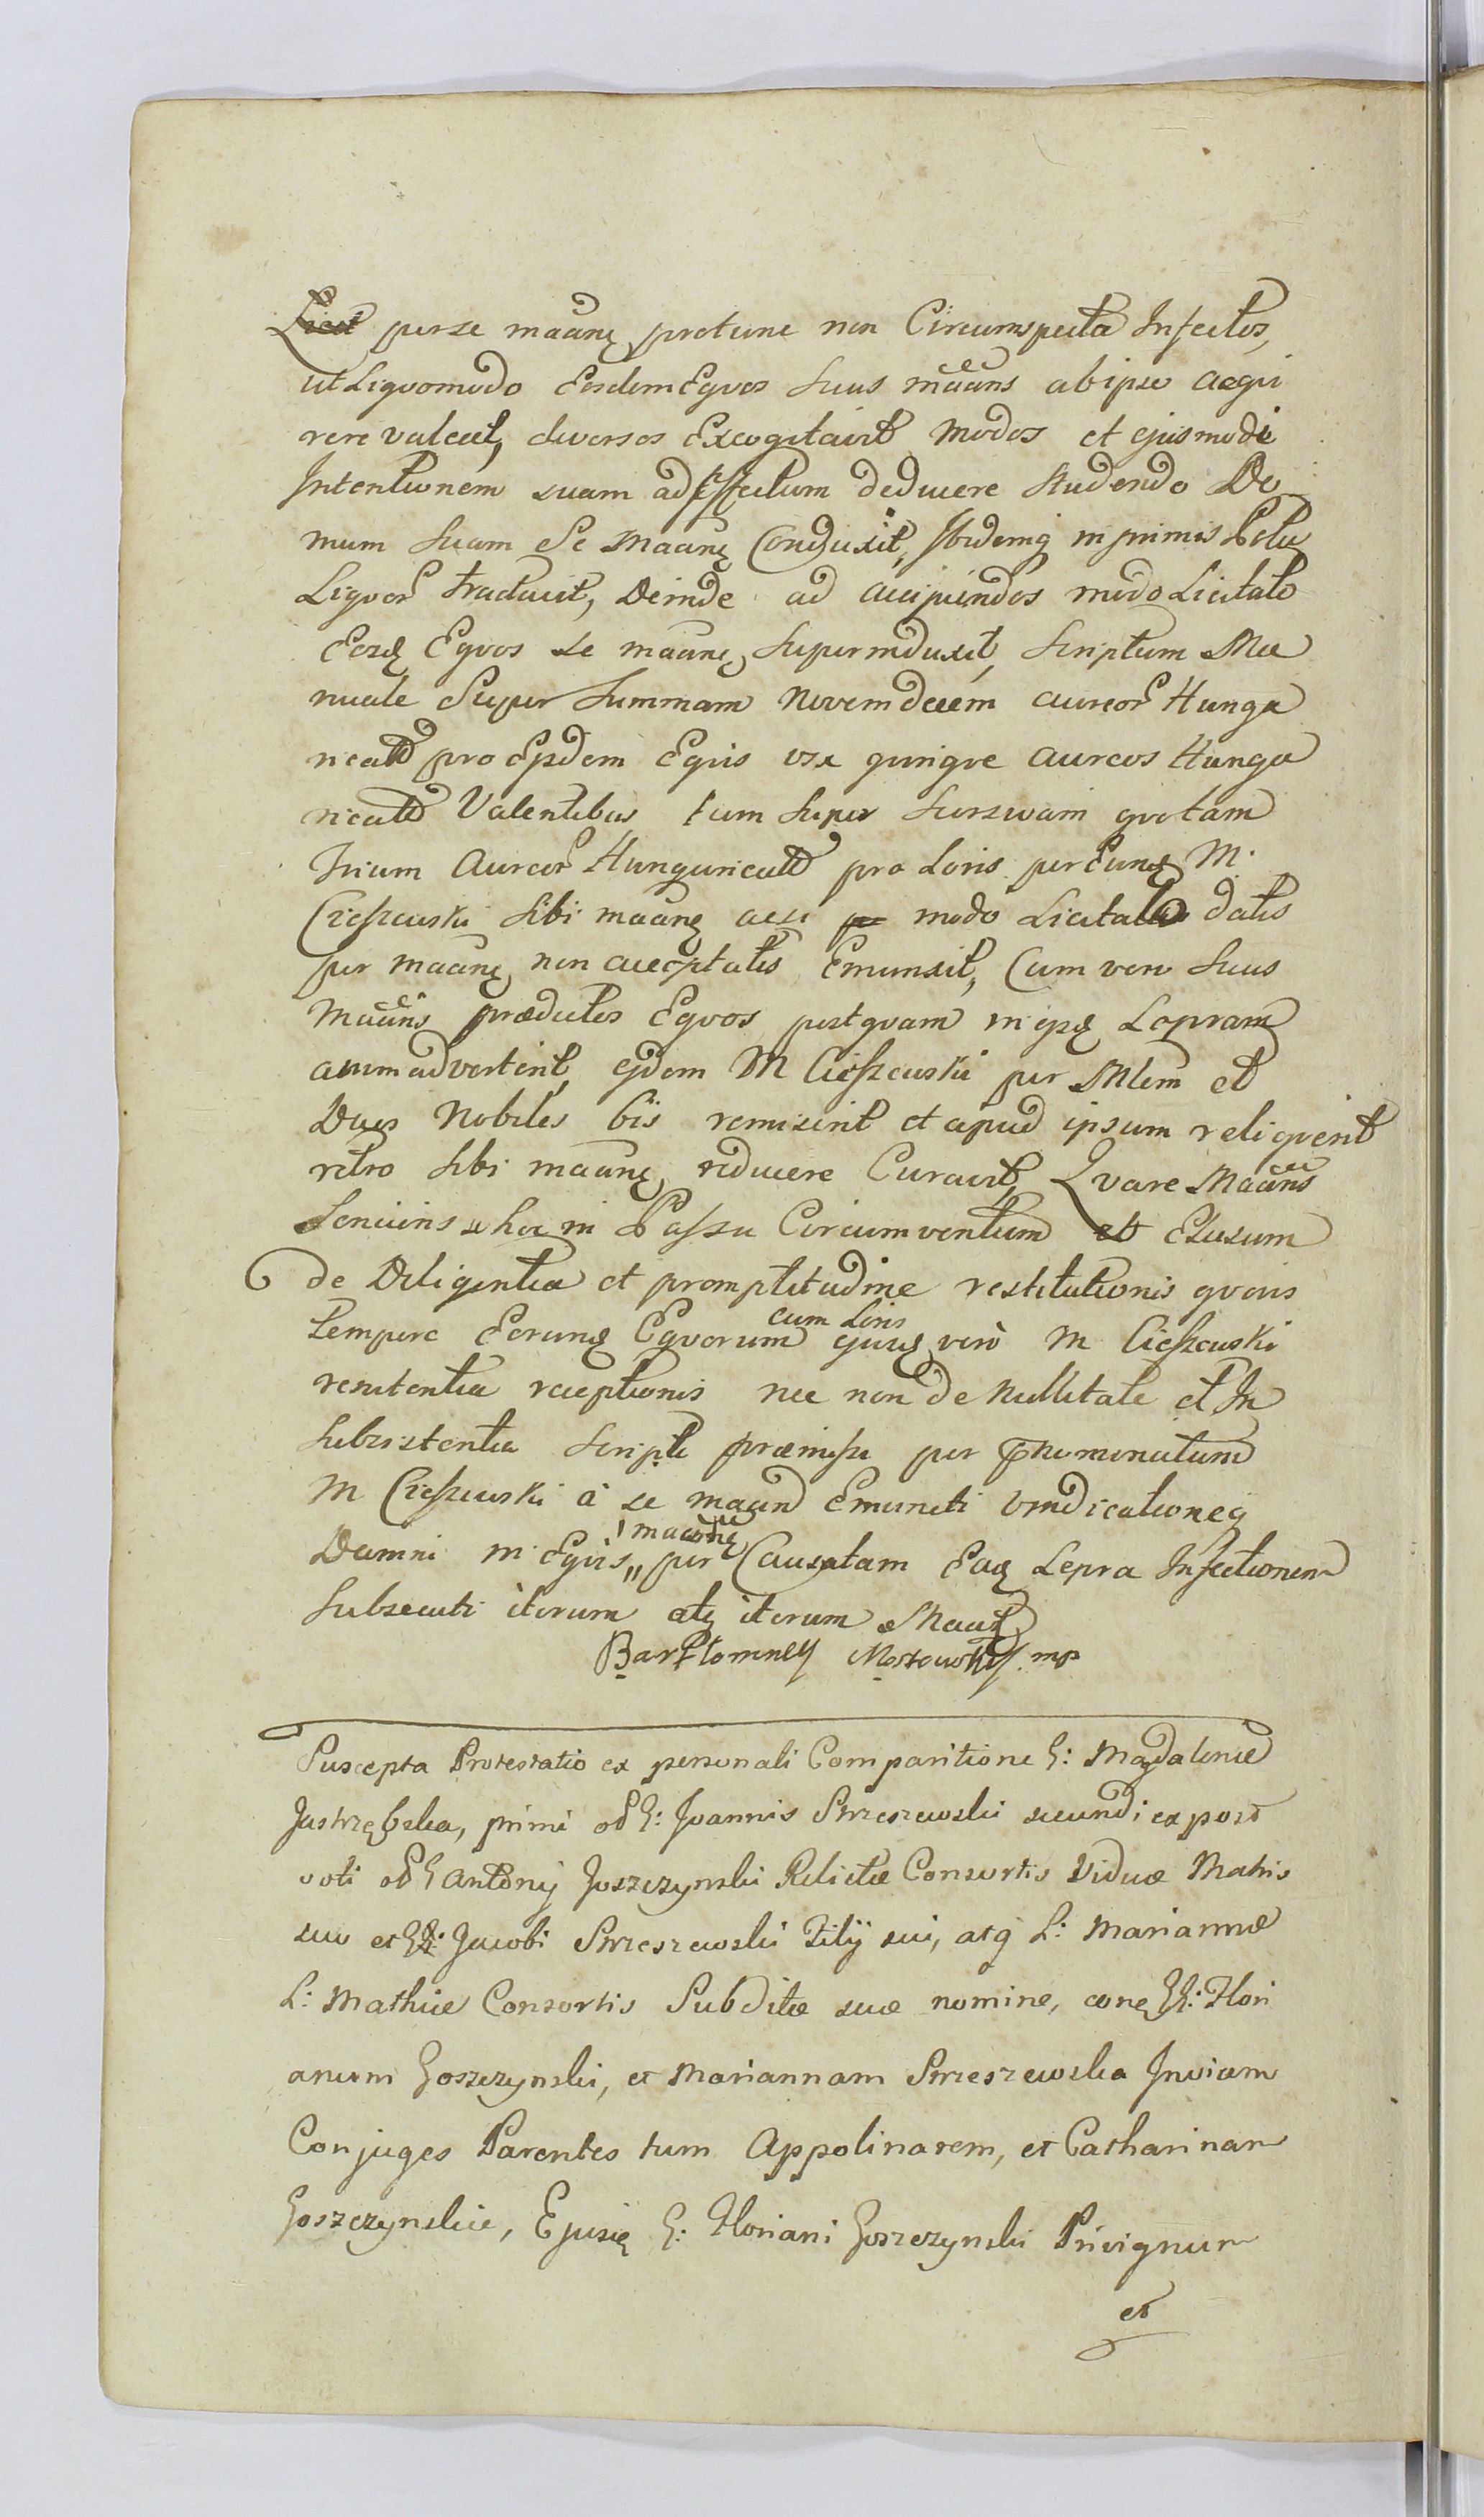 Licet per se maãnẽ protunc non Circumspecta Infectos,
ut Liquomodo Eosdem Equos Suus maãns ab ipso acqui
rere valeat, diversos Excogitavit Modos et ejusmodi
Intentionem suam ad Effectum deducere studendo Do
mum suam Se Maãnẽ Conduxit, Ibidemq inprimis Potu
Liquor tractavit, Deinde ad accipiendos modo Licitato
Eosq Equos se maãnẽ superinduxit, Scriptum Ma
nuale Super Summam Novemdecem aureor Hunga
rical pro Ejsdem Equis vix quinque aureos Hunga
rical Valentibus tum super surswam quotam
trium Aureor Hungarical pro Loris per Eunq M.
Cieszewski sibi maãnẽ acsi modo Licitato datis
per maãnẽ non acceptatis Emunxit, Cum vero Suus
Maãns prædictos Equos postquam in ipsq Lepram
animadvertent, ejdem M Cieszewski per Mlem et
Duos Nobiles bis remiserit et apud ipsum reliquerit
retro sibi maãnẽ reducere Curavit, Quare Maãns
Senciens se hoc in Passu Circumventum et Elusum
de Diligentia et promptitudine restitutionis quovis
tempore Eorunq Equorum cum Loris ejusq vero M Cieszewski
renitentia receptionis nec non de Nullitate et In
subsistentia Scripti præmissi per prænominatum
M Cieszewski à se maãn Emuncti vindicationeq
Damni in Equis maãnẽ per Causatam Eaq Lepra Infectionem
Subsecuti iterum atq iterum Maãt
Bartlomney Mostowski mp
Suscepta Protestatio ex personali Comparitione G: Magdalenæ
Jastrzębska, primi ol G: Joannis Strzeszewski secundi ex post
voti ol G Antonij Goszczynski Relictæ Consortis Viduæ Matris
suo et G: Jacobi Strzeszewski Filij sui, atq L: Mariannæ
L: Mathiæ Consortis Subditæ suæ nomine, conq GG: Flori
anum Goszczynski, et Mariannam Strzeszewska Invicem
Conjuges Parentes tum Appolinarem, et Catharinam
Goszczynskie, Ejusq G: Floriani Goszczynski Privignum
et